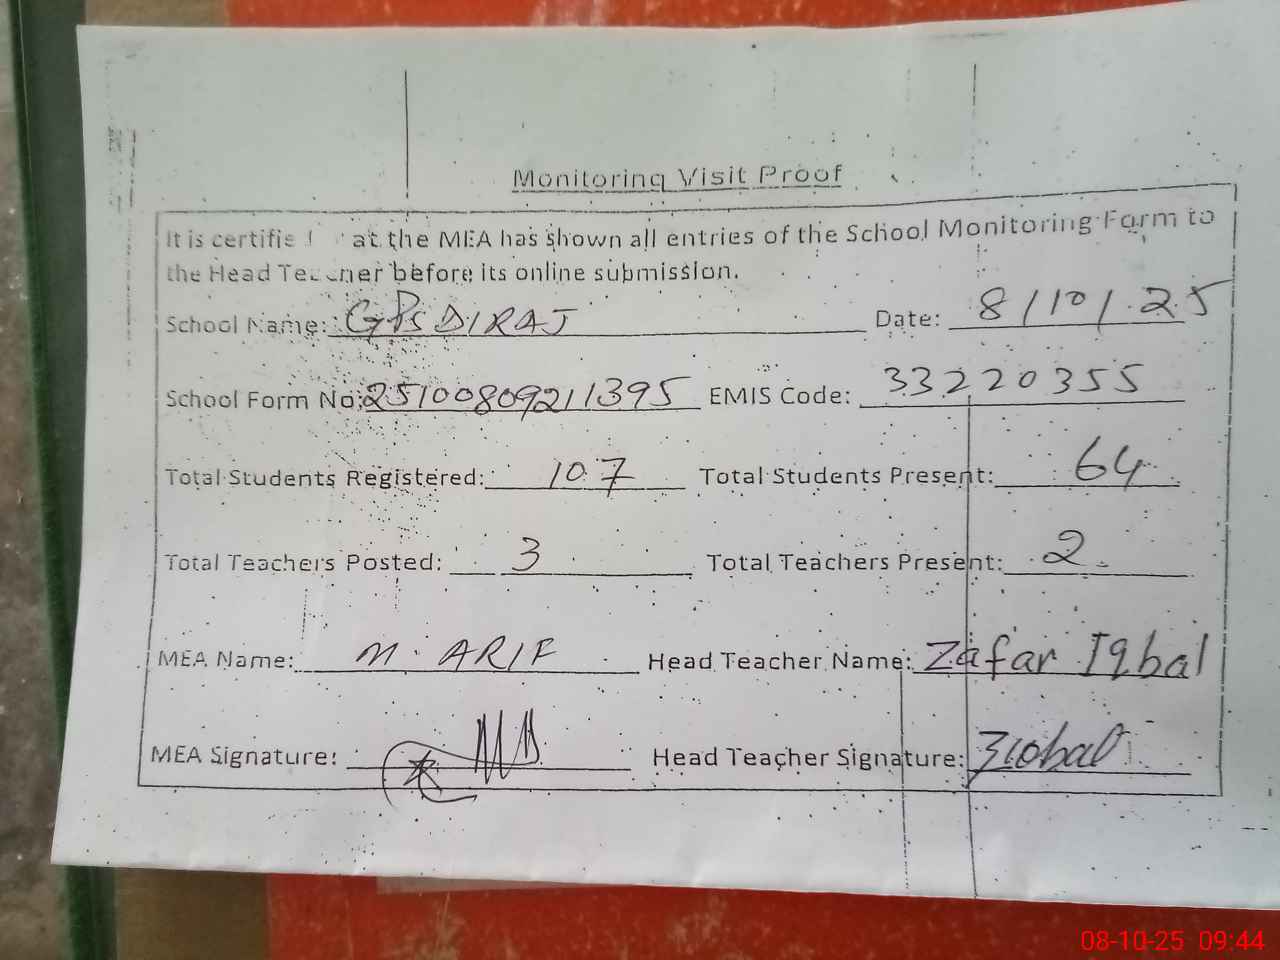 Monitoring Visit Proof
It is at the MEA has shown all entries of the School Monitoring Form to
the Head before its online submission.
School Name: GPS DIRAJ Date: 8/10/25
School Form No: 25100809211395 EMIS Code: 33220355
Total Students Registered: 107 Total Students Present: 64
Total Teachers Posted: 3 Total Teachers Present: 2
MEA Name: M. ARIF Head Teacher Name: Zafar Iqbal
MEA Signature: Head Teacher Signature:
08-10-25 09:44